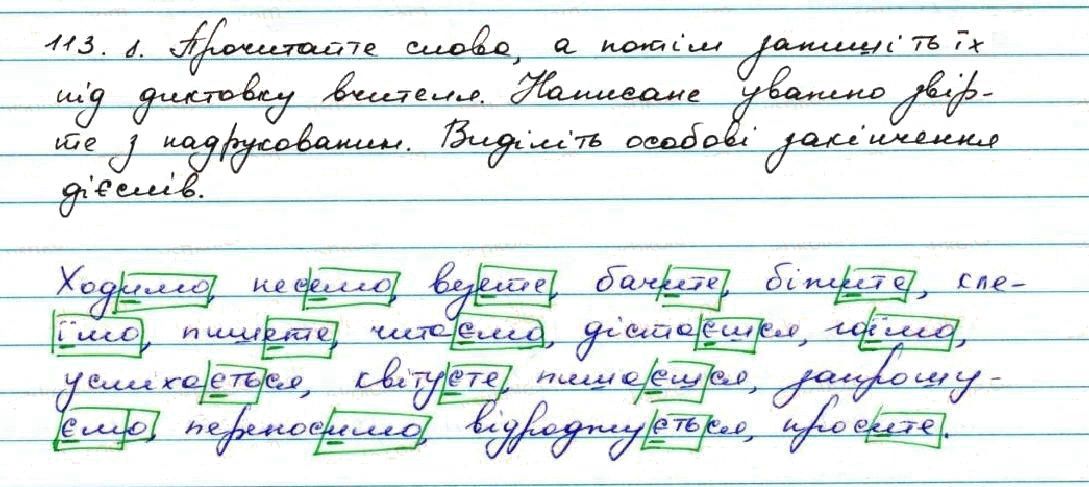 113. 1. Прочитайте слова, а потім запишіть їх
під диктовку вчителя. Написане уважно звір-
те з надрукованим. Виділіть особові закінчення
дієслів.
Ходимо, несемо, везете, бачите, біжите, кле-
їмо, пишете, читаємо, дістаєшся, гоїмо,
усміхається, квітуєте, пишаєшся, запрошу-
ємо, переносимо, відроджується, просите.